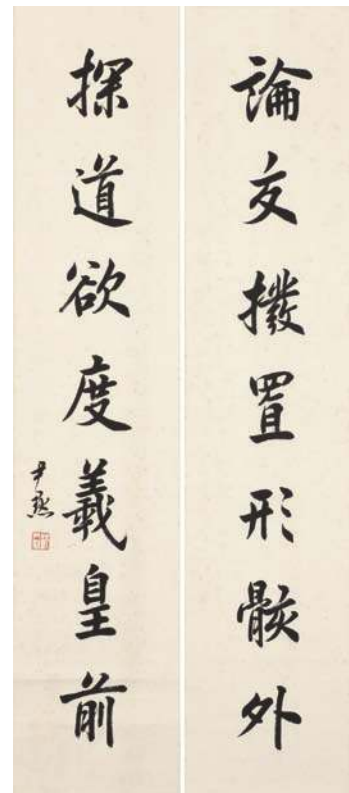 論文撥置形骸外
探道欲度義皇前
尹默